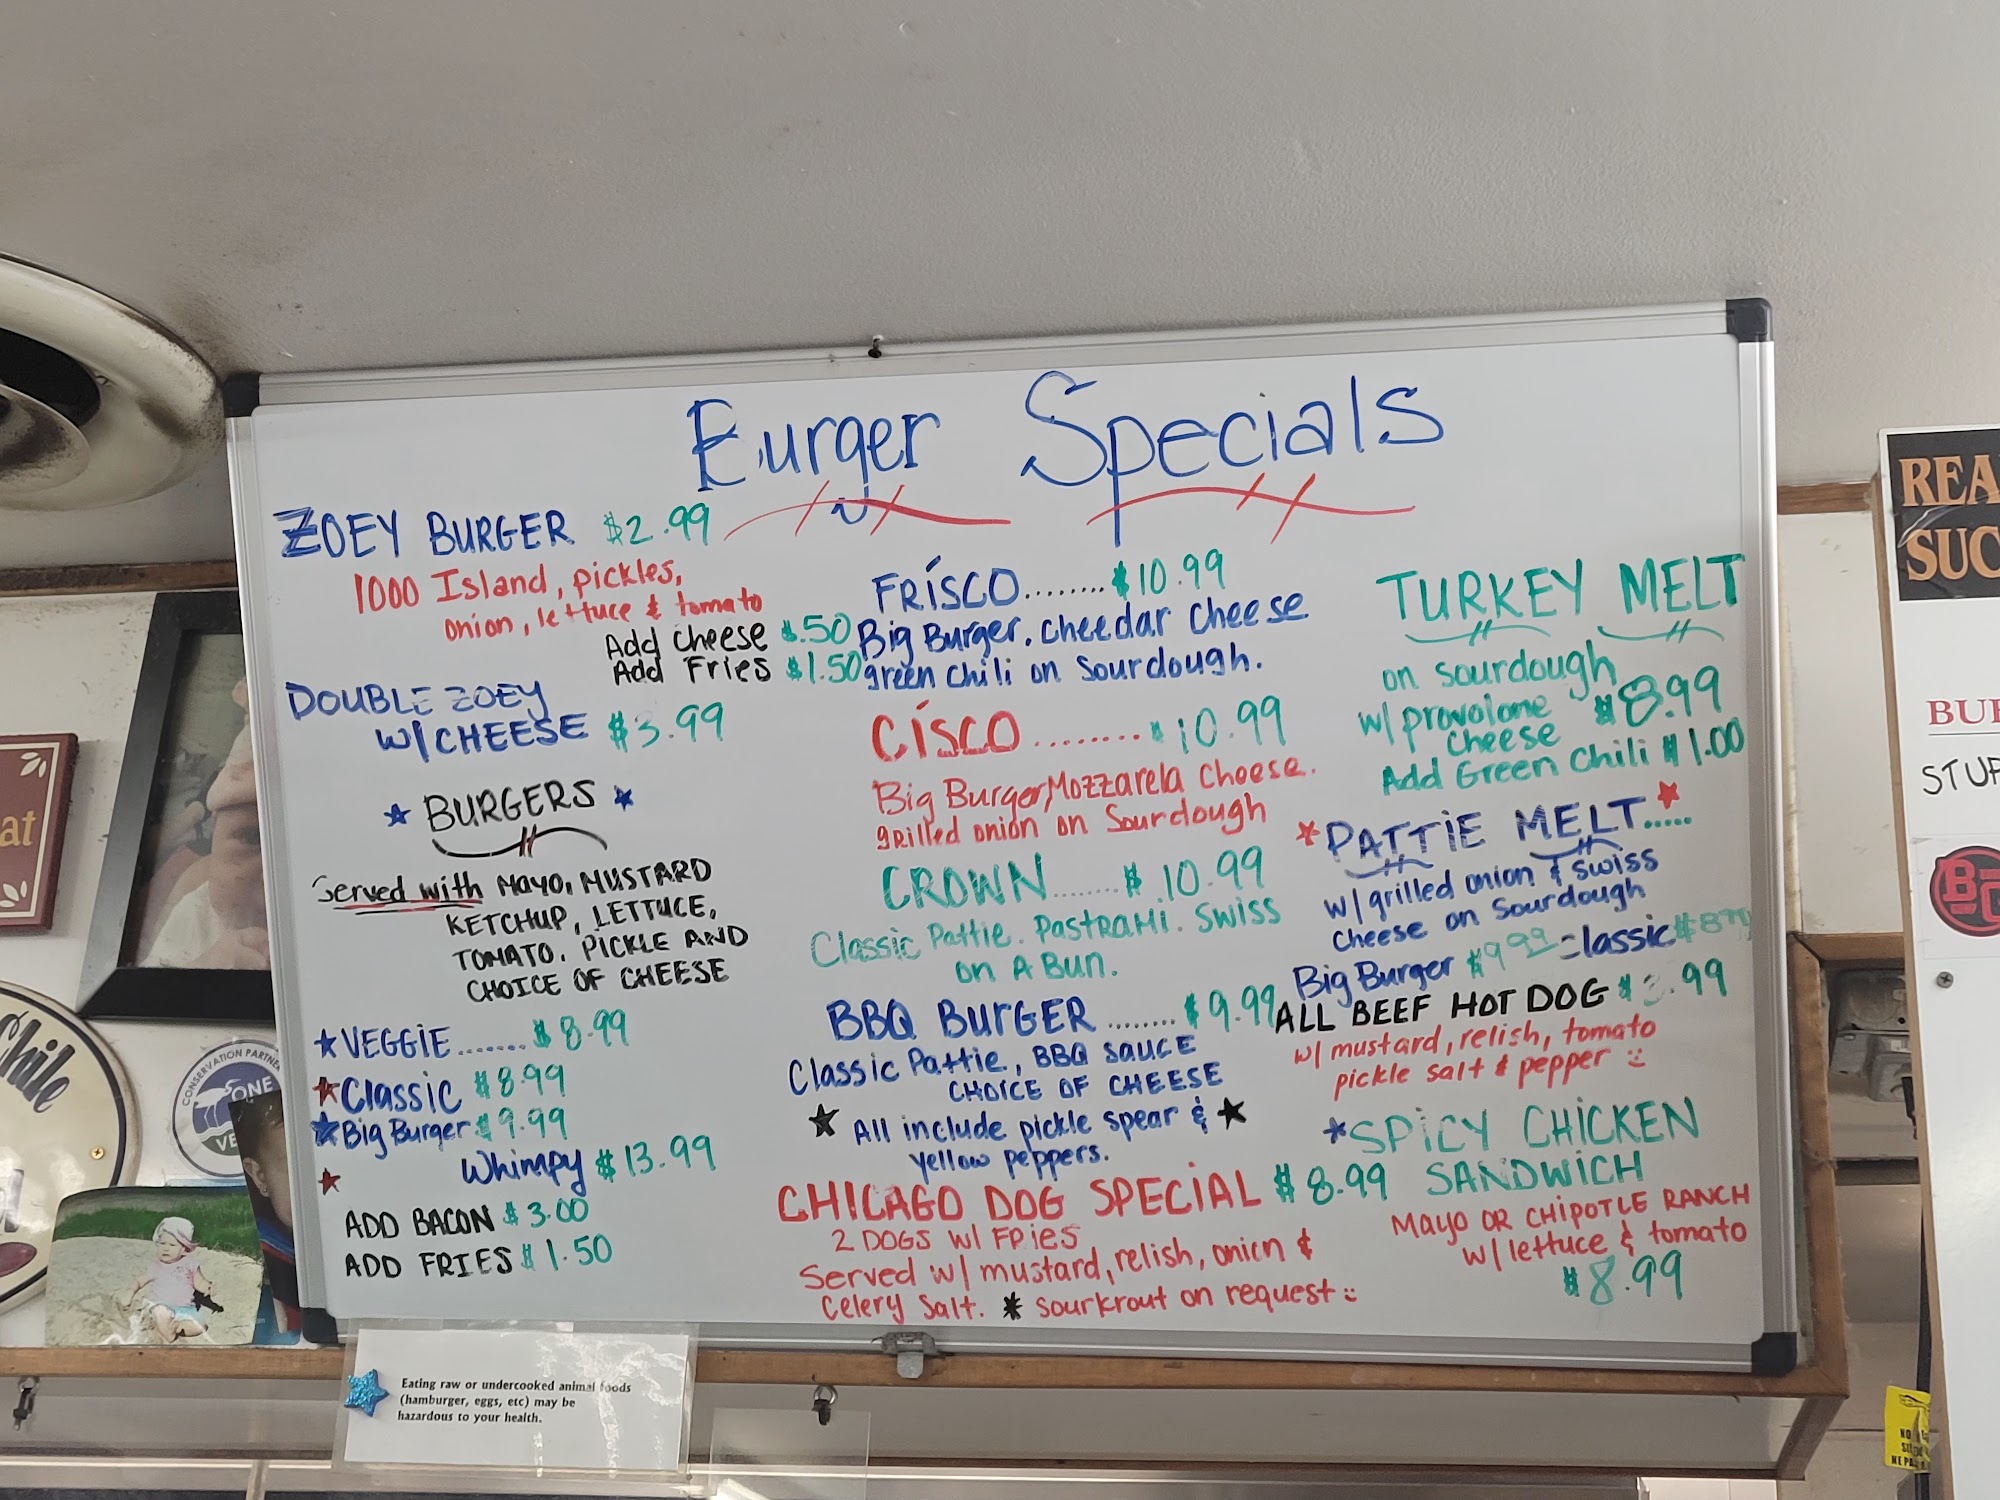 Burger Specials
ZOEY BURGER $2.99
1000 Island, pickles,
onion, lettuce & tomato
Add cheese $.50
Add Fries $1.50
DOUBLE ZOEY
W/CHEESE $3.99
BURGERS
Served with MAYO, MUSTARD
KETCHUP, LETTUCE,
TOMATO, PICKLE AND
CHOICE OF CHEESE
VEGGIE....... $8.99
Classic $8.99
Big Burger $9.99
Whimpy $13.99
ADD BACON $3.00
ADD FRIES $1.50
FRISCO........ $10.99
Big Burger. cheedar cheese
green chili on sourdough.
CISCO ........ $10.99
Big Burger, Mozzarela cheese.
grilled onion on Sourdough
CROWN....... $10.99
Classic Pattie. Pastrami. Swiss
on A Bun.
BBQ BURGER ........ $9.99
Classic Pattie, BBQ SAUCE
CHOICE OF CHEESE
All include pickle spear &
yellow peppers.
CHICAGO DOG SPECIAL $8.99
2 DOGS w/ Fries
Served w/ mustard, relish, onion &
Celery Salt. * sourkrout on request
TURKEY MELT
on sourdough
w/ provolone $8.99
cheese
Add Green Chili $1.00
PATTIE MELT.....
w/grilled onion & swiss
cheese on sourdough
Big Burger $9.99 Classic
ALL BEEF HOT DOG
w/ mustard, relish, tomato
pickle salt & pepper
*SPICY CHICKEN
SANDWICH
Mayo OR CHIPOTLE RANCH
w/ lettuce & tomato
$8.99
Eating raw or undercooked animal foods
(hamburger, eggs, etc) may be
hazardous to your health.
CONSERVATION PARTNER
ONE
Chile
at
REA
SUC
BU
STUF